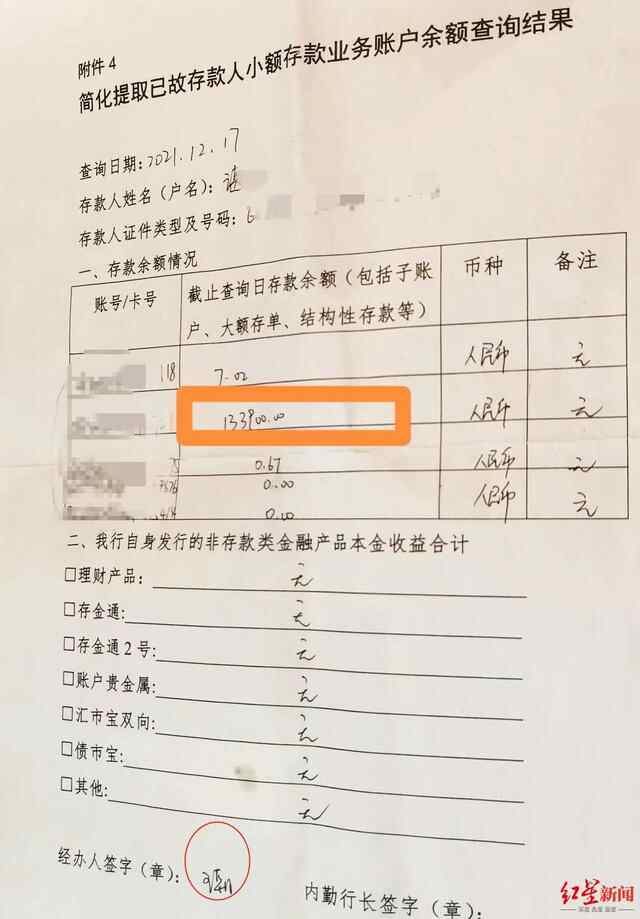 附件4
简化提取已故存款人小额存款业务账户余额查询结果
查询日期:2021.12.17
存款人姓名(户名):
存款人证件类型及号码:6
一、存款余额情况
账号/卡号 截止查询日存款余额(包括子账户、大额存单、结构性存款等) 币种 备注
118 7.02 人民币 元
133900.00 人民币 元
75 0.67 人民币 元
7576 0.00 人民币 元
0.00
二、我行自身发行的非存款类金融产品本金收益合计
□理财产品: 元
□存金通: 元
□存金通2号: 元
□账户贵金属: 元
□汇市宝双向: 元
□债市宝: 元
□其他: 元
经办人签字(章):
内勤行长签字(章):
红星新闻